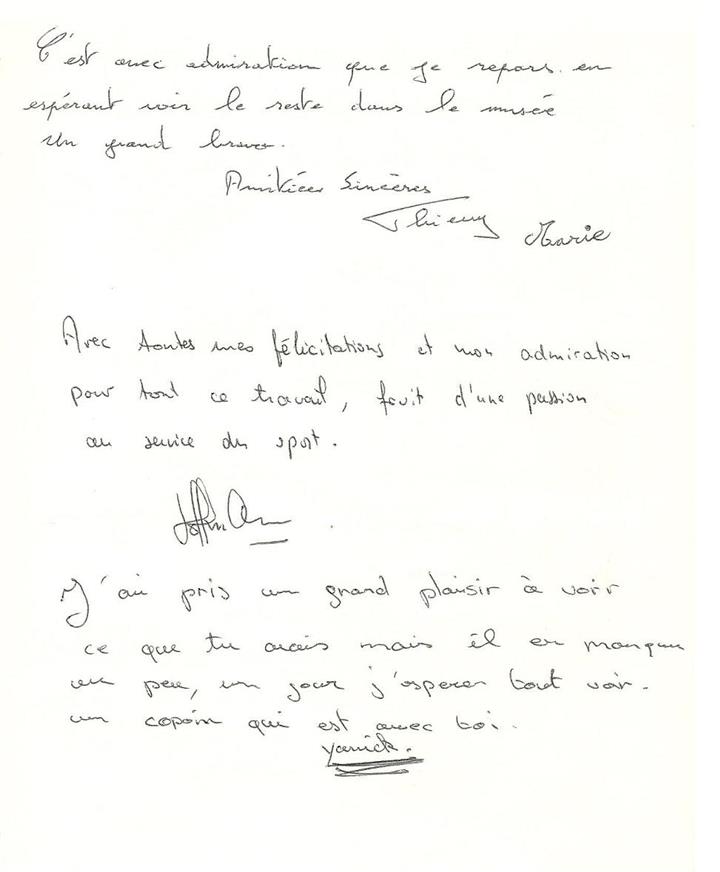 C'est avec admiration que je repars en
espérant voir le reste dans le musée
Un grand bravo.
Amitiées Sincères
Thierry Marie
Avec toutes mes félicitations et mon admiration
pour tout ce travail, fruit d'une passion
au service du sport.
J'ai pris un grand plaisir à voir
ce que tu avais mais il en manque
un peu, un jour j'esperer tout voir.
un copain qui est avec toi.
Yanick.